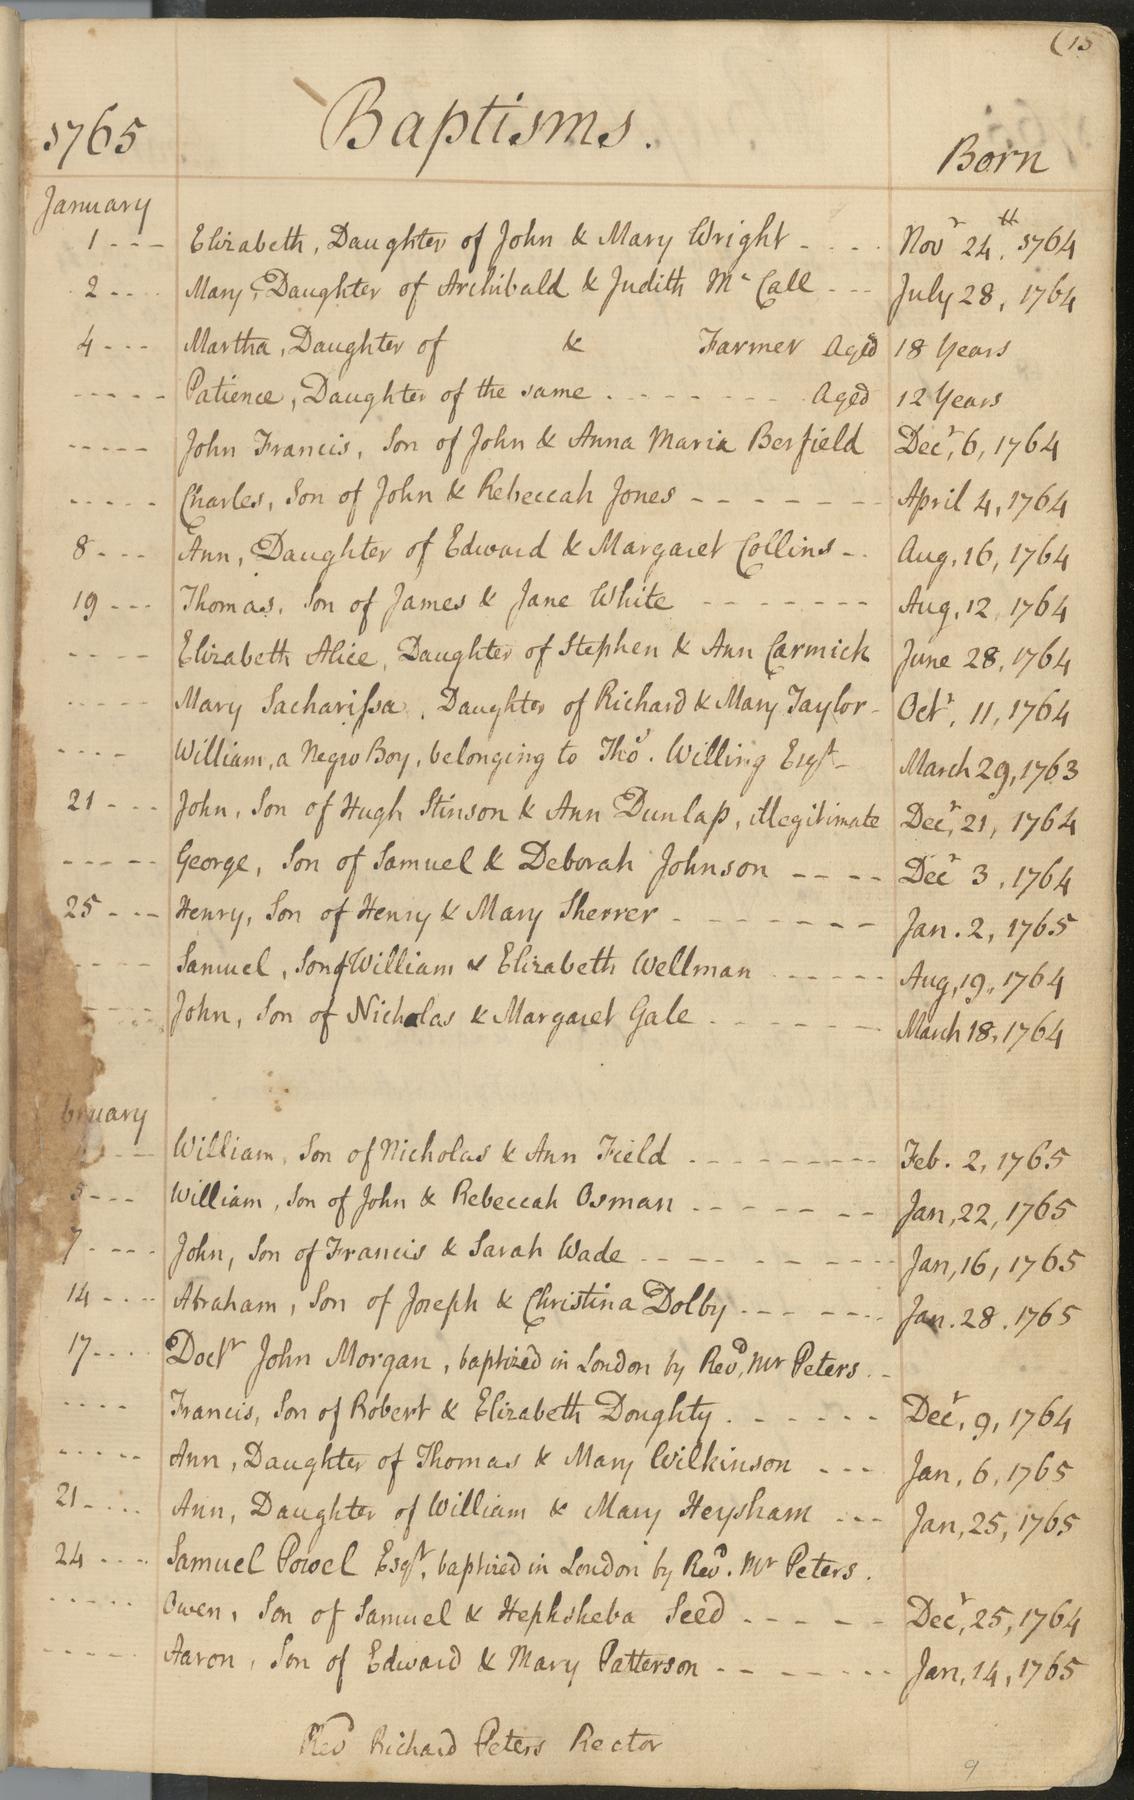 (15
1765 Baptisms. Born
January
1 - - - Elizabeth, Daughter of John & Mary Wright - - - - Novr 24th. 1764
2 - - - - Mary, Daughter of Archibald & Judith Mc Call - - - July 28, 1764
4 - - - Martha, Daughter of & Farmer Aged 18 Years
- - - - - Patience, Daughter of the same - - - - - - - - Aged 12 Years
- - - - - John Francis, Son of John & Anna Maria Berfield Decr, 6, 1764
- - - - - Charles, Son of John & Rebeccah Jones - - - - - - - April 4, 1764
8 - - - Ann, Daughter of Edward & Margaret Collins - - Aug, 16, 1764
19 - - - Thomas, Son of James & Jane White - - - - - - - Aug, 12, 1764
- - - - Elizabeth Alice, Daughter of Stephen & Ann Carmick June 28, 1764
- - - - - Mary Sacharissa, Daughter of Richard & Mary Taylor - Octr, 11, 1764
- - - - William, a Negro Boy, belonging to Thos. Willing Esqr - March 29, 1763
21 - - - John, Son of Hugh Stinson & Ann Dunlap, illegitimate Decr, 21, 1764
- - - - - George, Son of Samuel & Deborah Johnson - - - - Decr 3, 1764
25 - - - Henry, Son of Henry & Mary Sherrer - - - - - - - - Jan. 2, 1765
- - - - Samuel, Son of William & Elizabeth Wellman - - - - - Aug, 19, 1764
- - - - John, Son of Nicholas & Margaret Gale - - - - - - - March 18, 1764
bruary
- - - William, Son of Nicholas & Ann Field - - - - - - - - - Feb. 2, 1765
5 - - - William, Son of John & Rebeccah Osman - - - - - - - Jan, 22, 1765
7 - - - - John, Son of Francis & Sarah Wade - - - - - - - - - Jan, 16, 1765
14 - - - - Abraham, Son of Joseph & Christina Dolby - - - - - - - Jan. 28. 1765
17 - - - - Doctr John Morgan, baptized in London by Revd, Mr Peters - -
- - - - Francis, Son of Robert & Elizabeth Doughty - - - - - - Decr, 9, 1764
- - - - - Ann, Daughter of Thomas & Mary Wilkinson - - - Jan, 6, 1765
21 - - - - Ann, Daughter of William & Mary Heysham - - - Jan, 25, 1765
24 - - - - Samuel Powel Esqr, baptized in London by Revd. Mr Peters.
- - - - - Owen, Son of Samuel & Hephsheba Seed - - - - - Decr, 25, 1764
- - - - - Aaron, Son of Edward & Mary Patterson - - - - - - - Jan, 14, 1765
Revd Richard Peters Rector
9